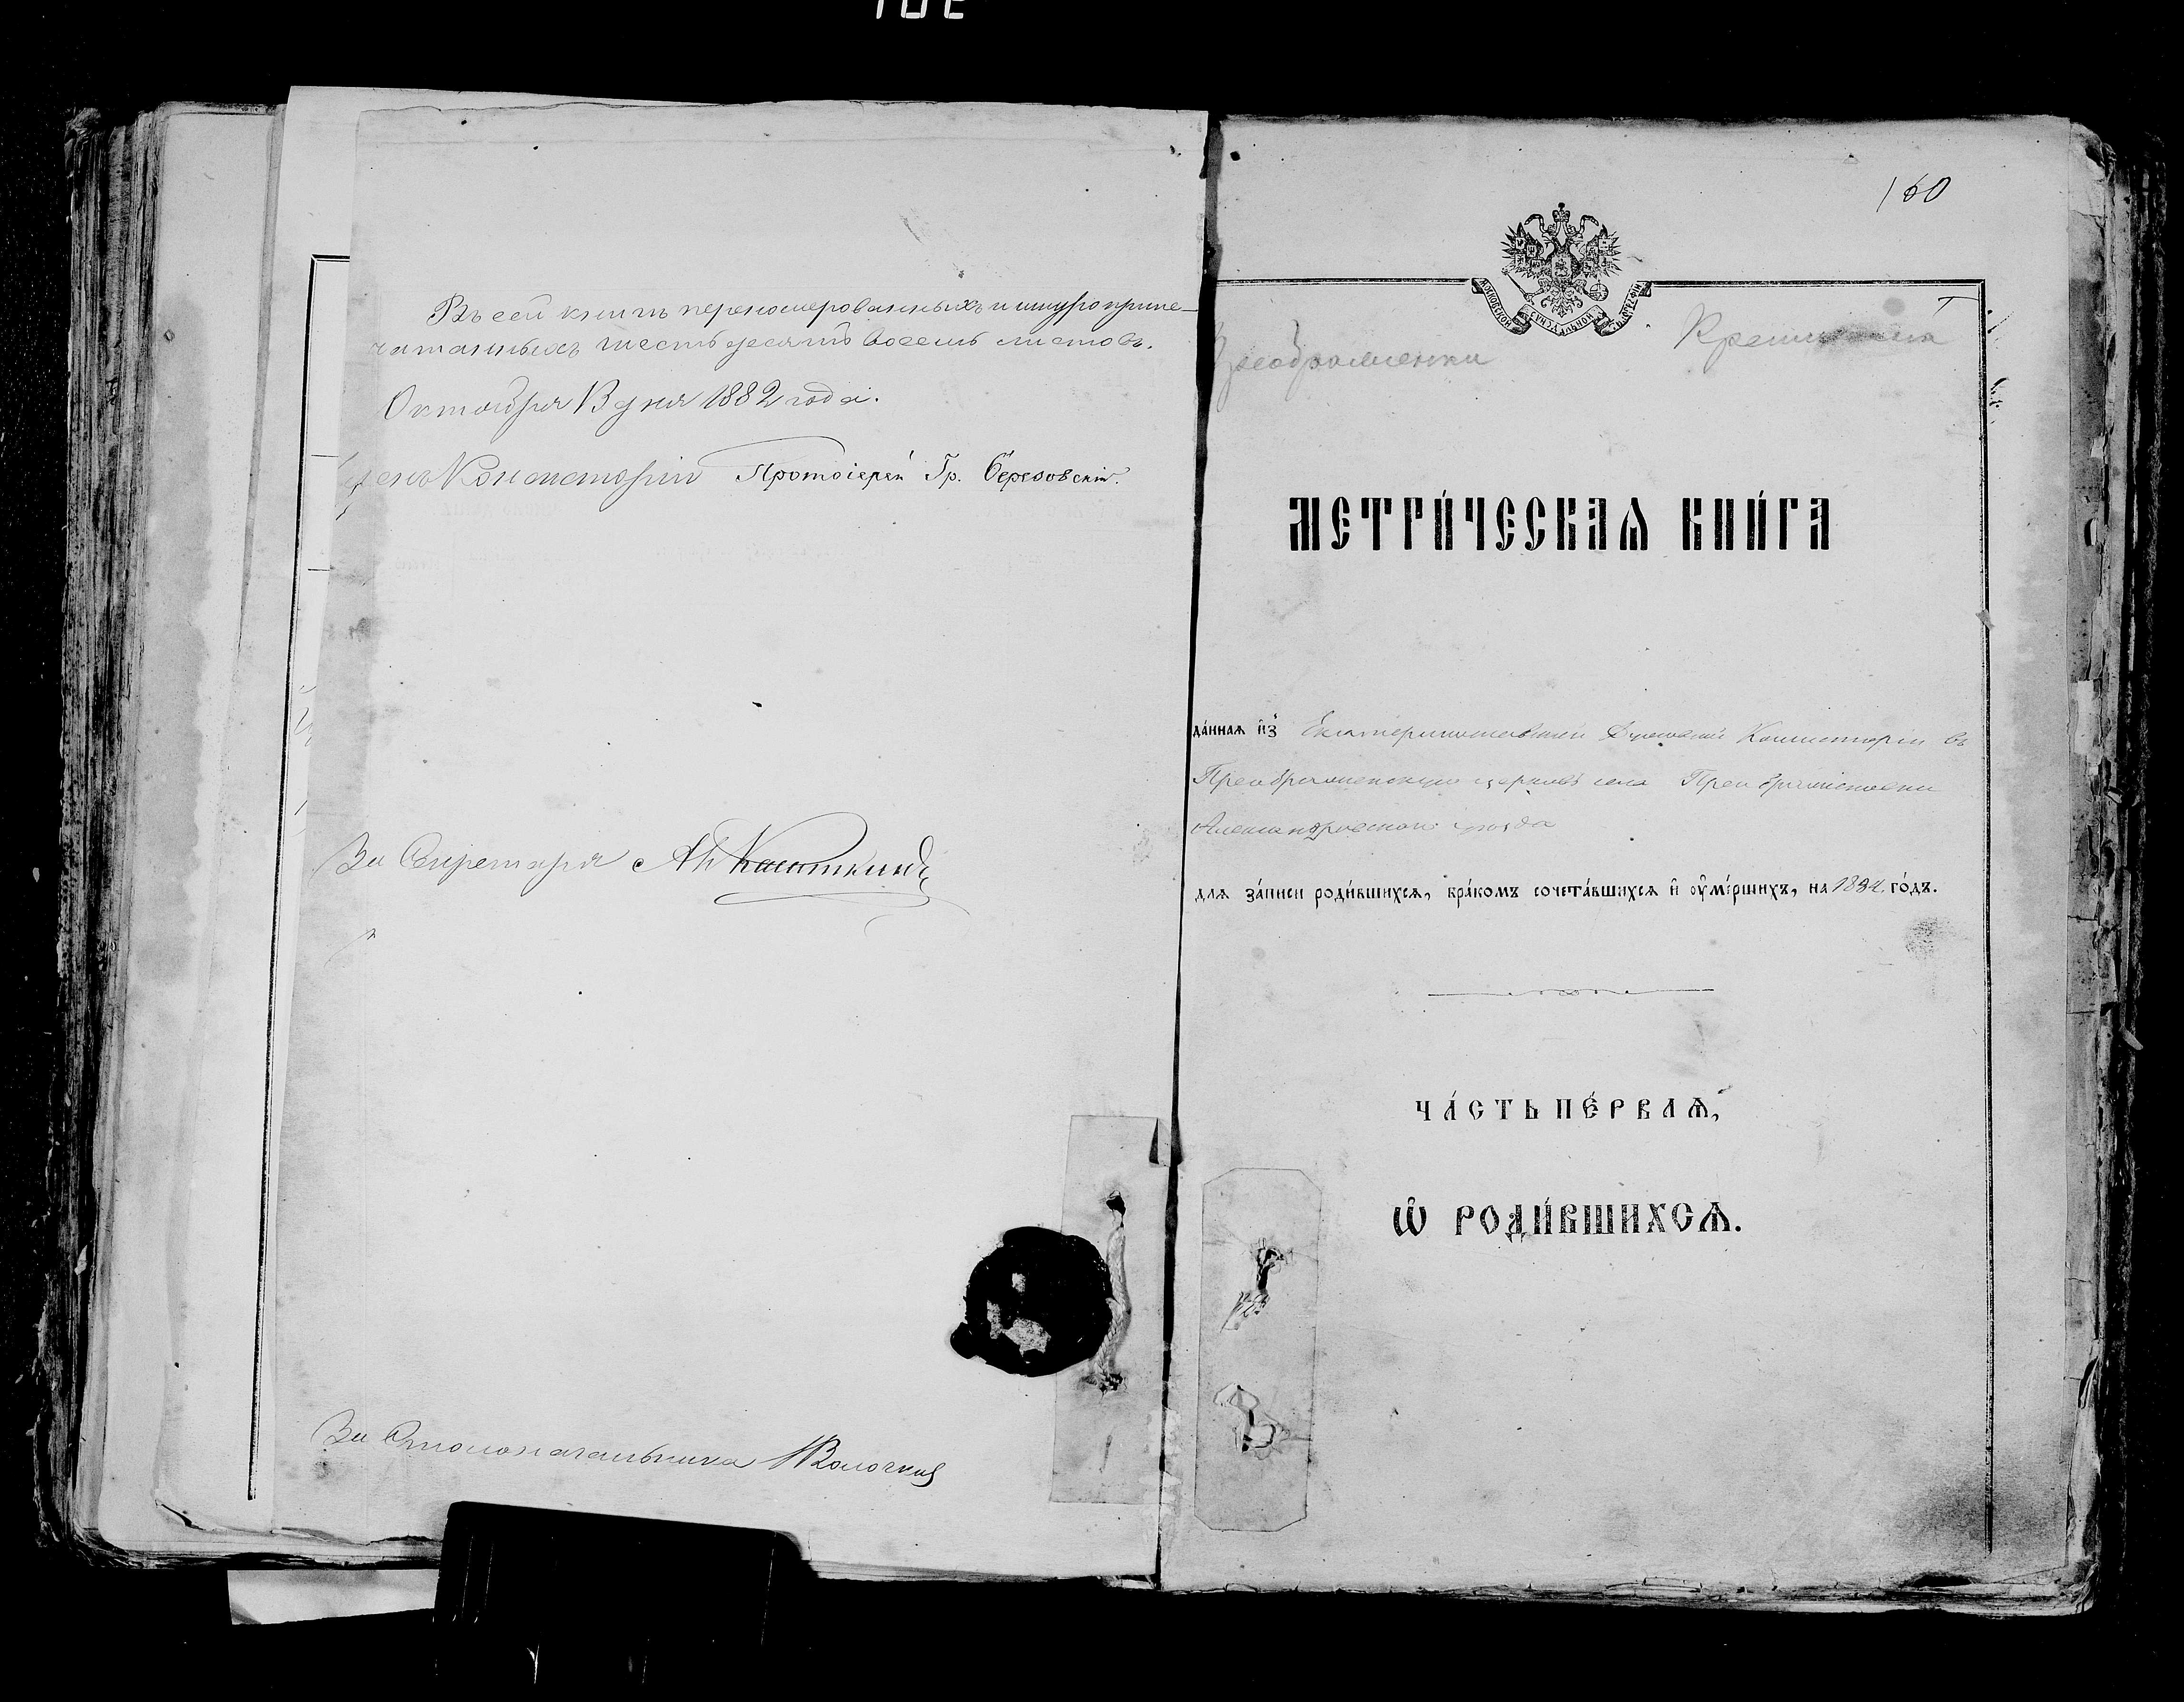 Въ сей книгѣ переномерованныхъ и шнуроприпе-
чатанныхъ шестьдесятъ восемь листовъ.
Октября 13 дня 1882 года.
Членъ Консисторіи Протоіерей Гр. Березовскій.
За Секретаря
За Столоначальника
160
Преображенки
МЕТРИ́ЧЕСКАѦ КНИ́ГА
да́ннаѧ и҆з̾ Екатеринославской Духовной Консисторіи въ
Преображенскую церковь села Преображенки
Александровскаго уѣзда
длѧ за́писи роди́вшихсѧ, бра́комъ сочета́вшихсѧ и҆ ᲂу҆ме́ршихъ, на го́дъ.
ЧА́СТЬ ПЕ́РВАѦ,
Ѽ РОДИ́ВШИХСѦ.